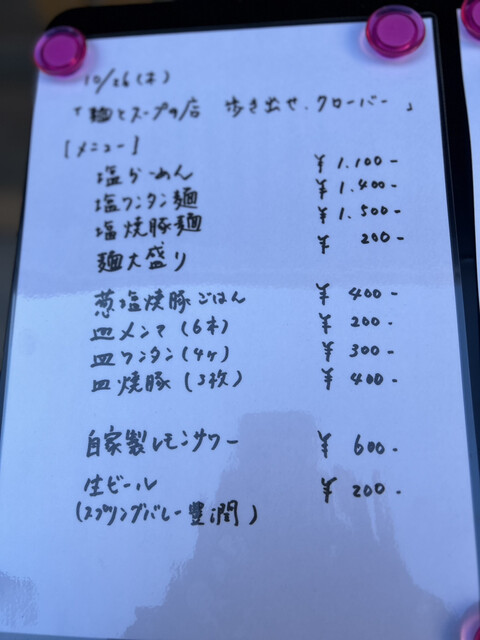 10/26(木)
「麺とスープの店 歩き出せ、クローバー」
[メニュー]
塩らーめん ¥1.100-
塩ワンタン麺 ¥1.400-
塩焼豚麺 ¥1.500-
麺大盛り ¥200-
葱塩焼豚ごはん ¥400-
皿メンマ(6本) ¥200-
皿ワンタン(4ヶ) ¥300-
皿焼豚(3枚) ¥400-
自家製レモンサワー ¥600-
生ビール ¥200-
(スプリングバレー豊潤)